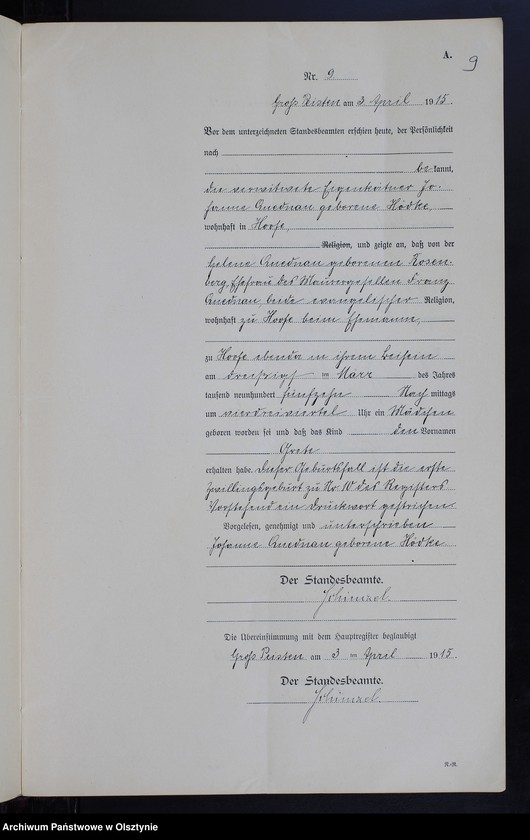 A.
9
Nr. 9
Groß Peisten am 3 April 1915.
Vor dem unterzeichneten Standesbeamten erschien heute, der Persönlichkeit
nach
be kannt,
die verwitwete Eigenkätner Jo-
hanne Quednau geborene Hödke,
wohnhaft in Hoofe,
Religion, und zeigte an, daß von der
Helene Quednau geborenen Rosen-
berg, Ehefrau des Maurergesellen Franz
Quednau, beide evangelischer Religion,
wohnhaft zu Hoofe beim Ehemanne,
zu Hoofe ebenda in ihrem Beisein
am dreißigst en März des Jahres
tausend neunhundert fünfzehn Nach mittags
um vierdreiviertel Uhr ein Mädchen
geboren worden sei und daß das Kind den Vornamen
Grete
erhalten habe. Dieser Geburtsfall ist die erste
Zwillingsgeburt zu Nr 10 des Registers
Vorstehend ein Druckwort gestrichen
Vorgelesen, genehmigt und unterschrieben
Johanne Quednau geborene Hödke
Der Standesbeamte.
Die Übereinstimmung mit dem Hauptregister beglaubigt
Groß Peisten am 3 ten April 1915.
Der Standesbeamte.
Archiwum Państwowe w Olsztynie